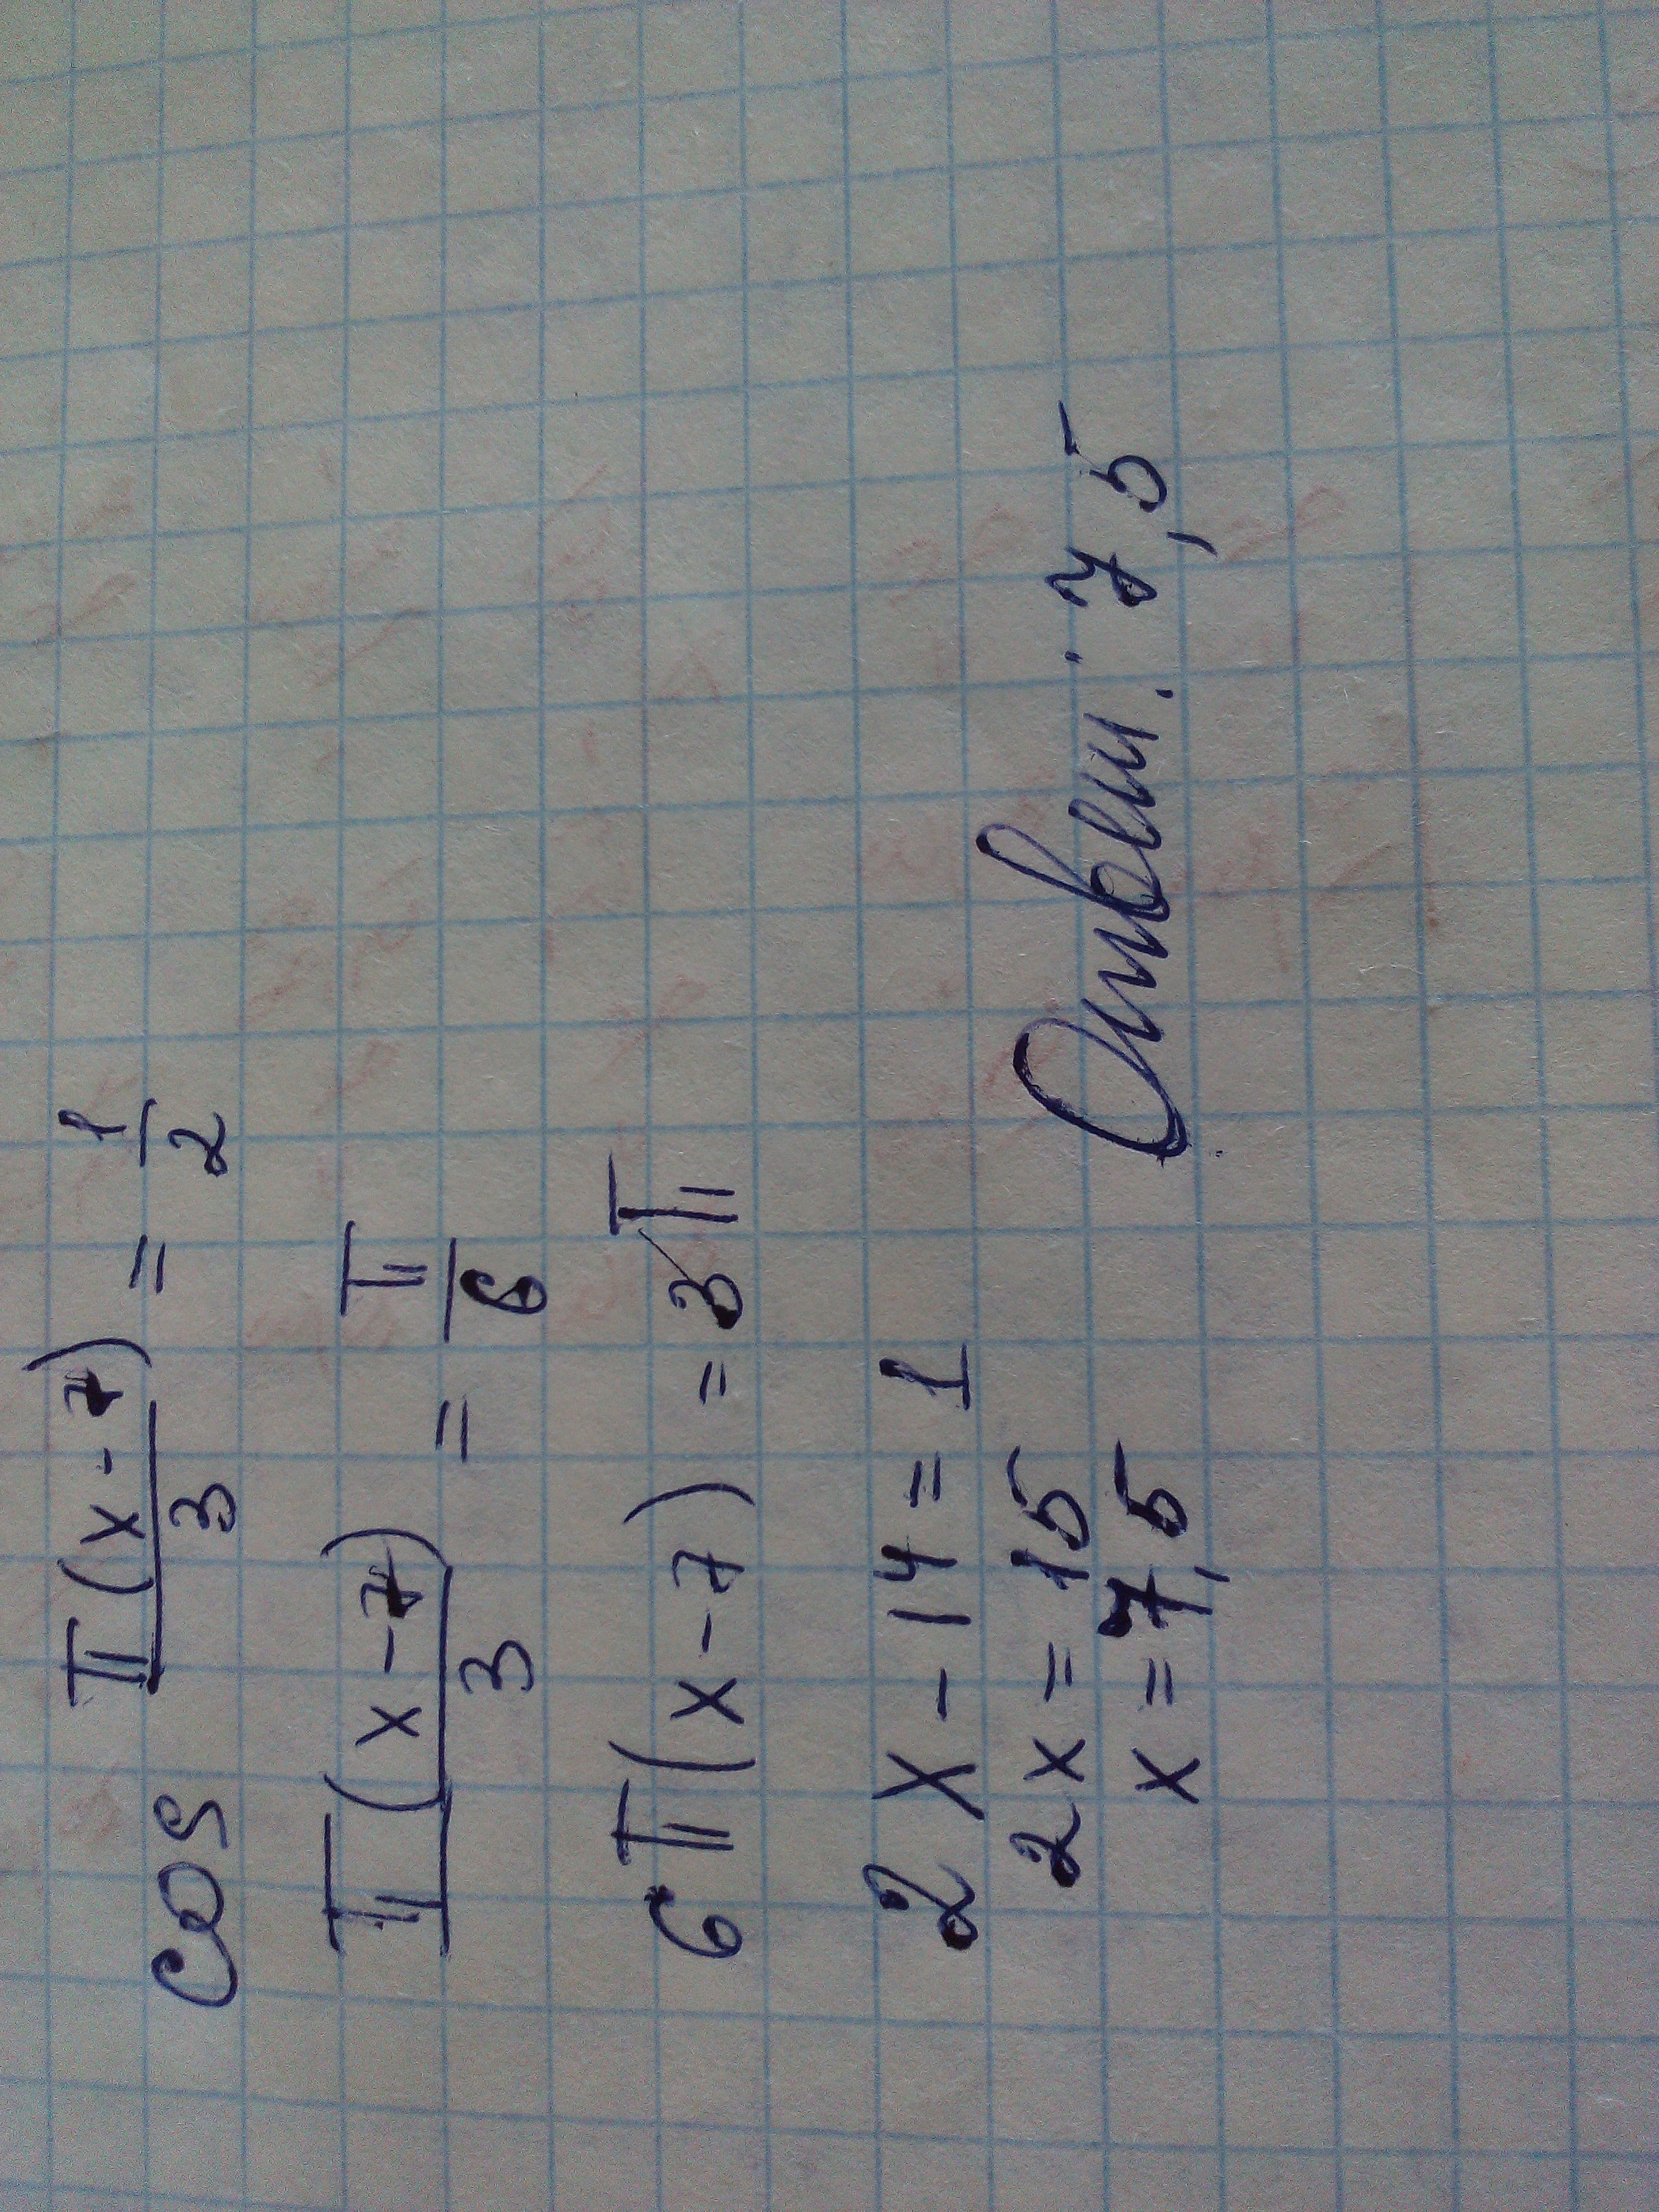 cos π(x-7)/3 = 1/2
π(x-7)/3 = π/6
6π(x-7) = 3π
2x - 14 = 1
2x = 15
x = 7,5
Ответ: 7,5